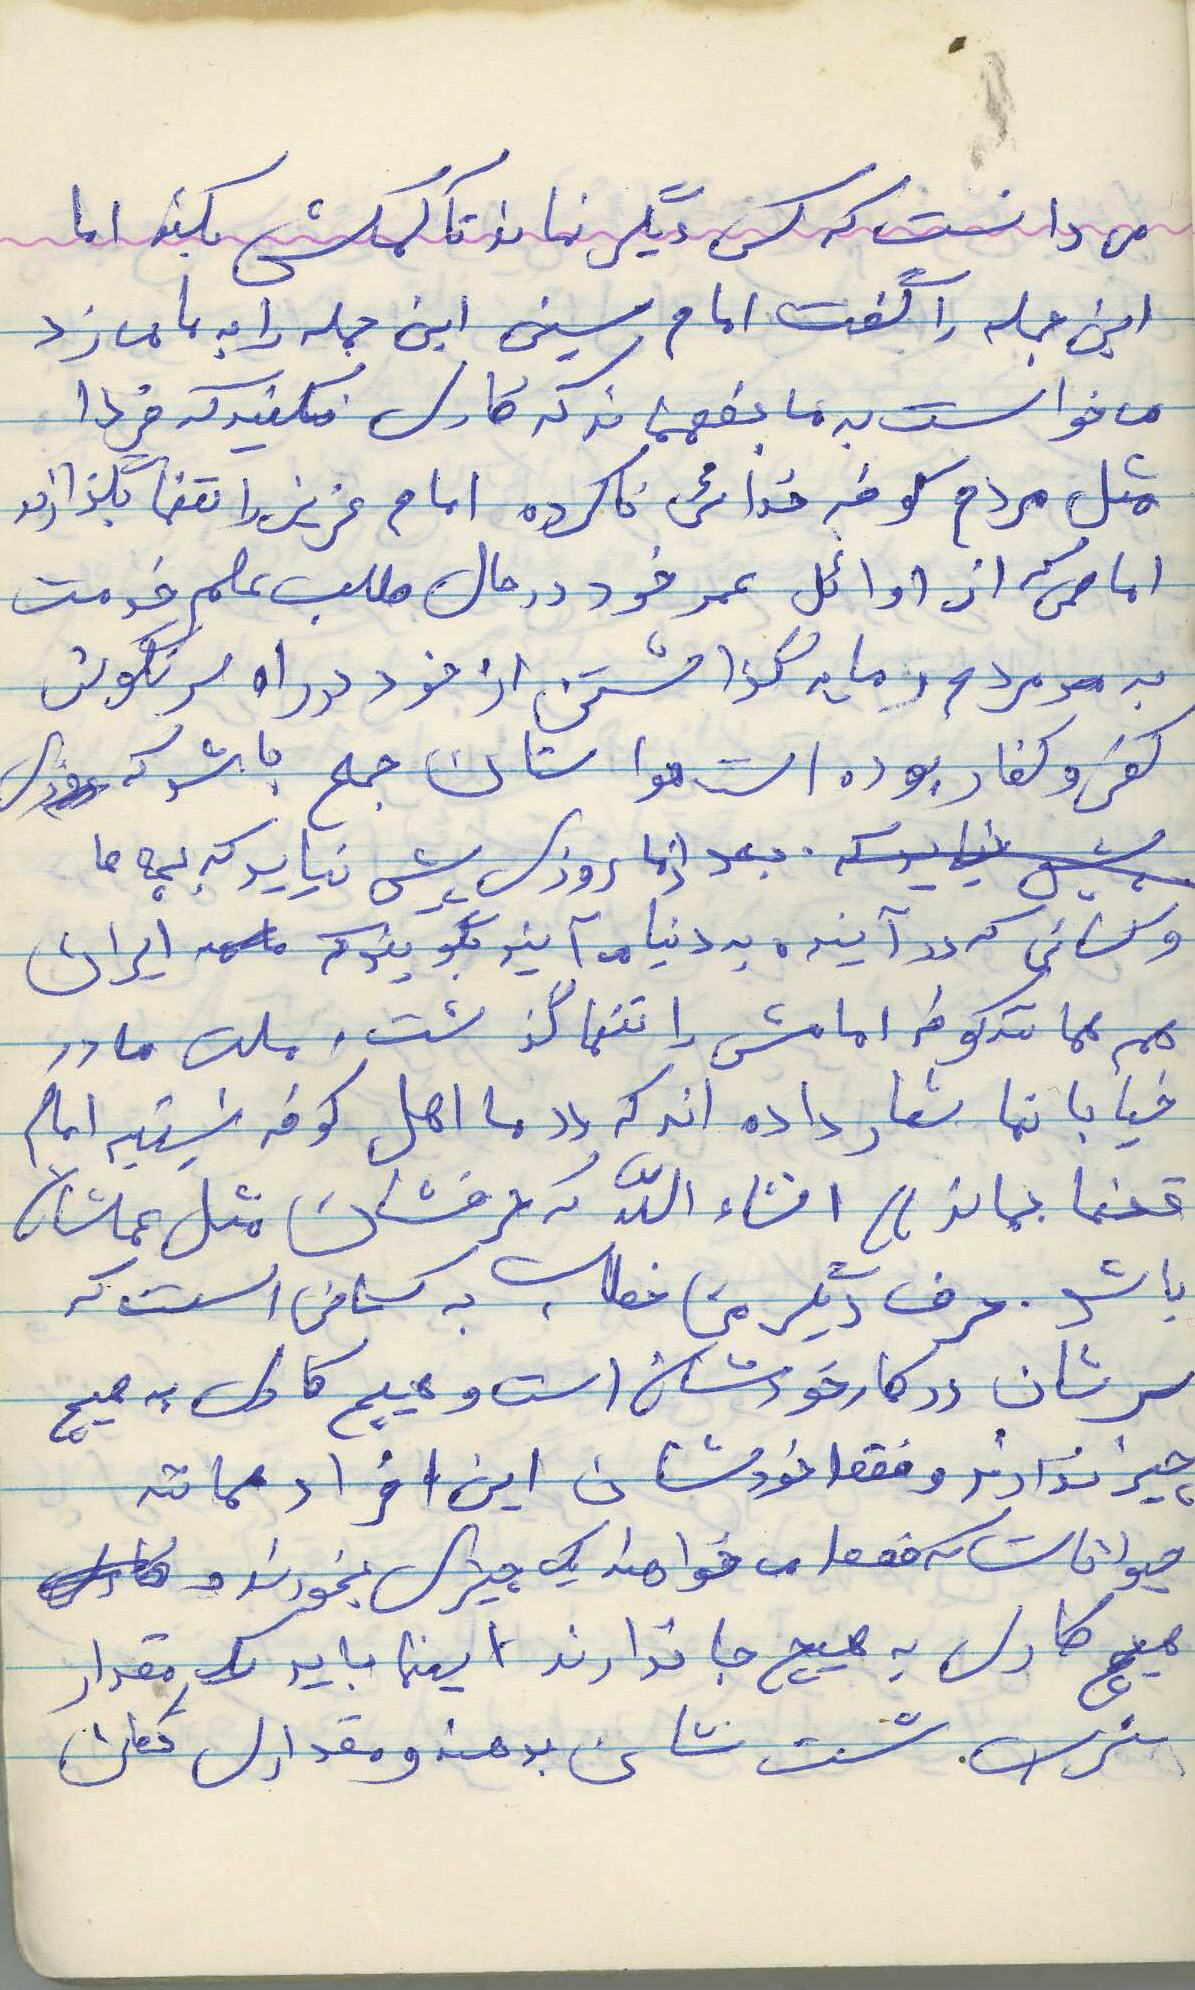 می دانست که کس دیگر نماند تا کمکش بکند اما
این جمله را گفت امام حسین این جمله را به ما می زد
می خواست به ما بفهماند که کاری نکنید که فردا
مثل مردم کوفه خدائی ناکرده امام عزیز را تنها بگذارید
امامی که از اوائل عمر خود در حال طلب علم خدمت
به مردم و مایه گذاشتن از خود در راه سرنگونی
کفر و کفار بوده است حواستان جمع باشد که
بعد از ما روزی پیش نیاید که بچه ها
و کسانی که در آینده به دنیا می آیند بگویند که ایران
هم همانند کوفه امامش را تنها گذشت، ملت ما در
خیابانها شعار داده اند که "ما اهل کوفه نیستیم امام
تنها بماند" انشاء الله که حرفشان مثل عملشان
باشد. حرف دیگر من خطاب به کسانی است که
سرشان در کار خودشان است و هیچ کاری به هیچ
چیز ندارند و فقط خودشان این افراد همانند
حیوانات که فقط می خواهند یک چیزی بخورند و
هیچ کاری به هیچ جا ندارند اینها باید یک مقدار
نشان بدهند و مقداری تکان